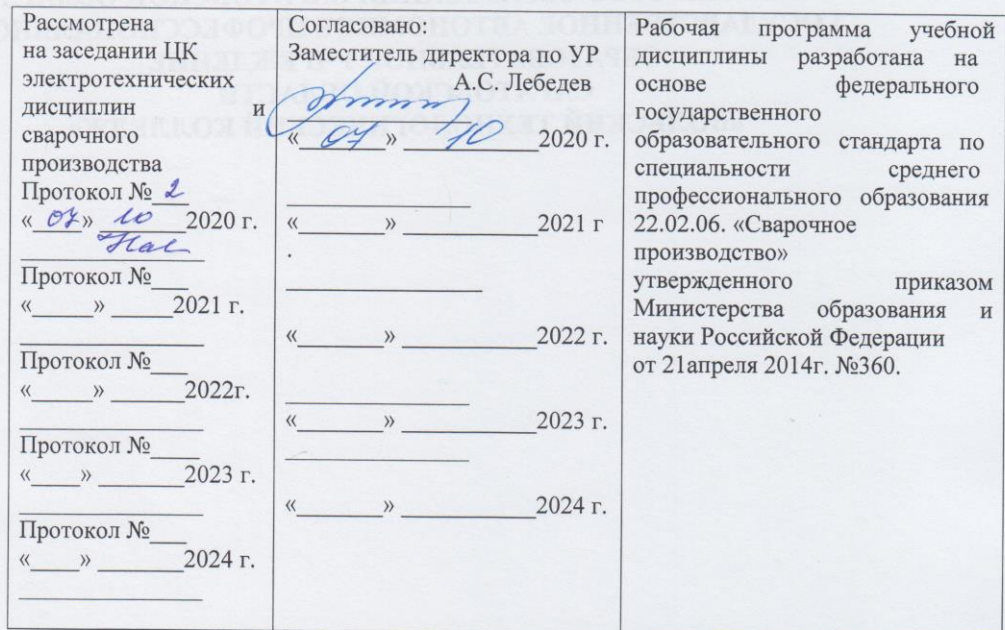 Рассмотрена
на заседании ЦК
электротехнических
дисциплин и
сварочного
производства
Протокол № 2
«07» 10 2020 г.
Протокол №___
«_____» ______2021 г.
Протокол №___
«_____» ______2022г.
Протокол №____
«____» ________2023 г.
Протокол №___
«____» ________2024 г.
Согласовано:
Заместитель директора по УР
А.С. Лебедев
«07» 10 2020 г.
«________» _____________2021 г
.
«________» _____________2022 г.
«________» _____________2023 г.
«________» _____________2024 г.
Рабочая программа учебной
дисциплины разработана на
основе федерального
государственного
образовательного стандарта по
специальности среднего
профессионального образования
22.02.06. «Сварочное
производство»
утвержденного приказом
Министерства образования и
науки Российской Федерации
от 21апреля 2014г. №360.